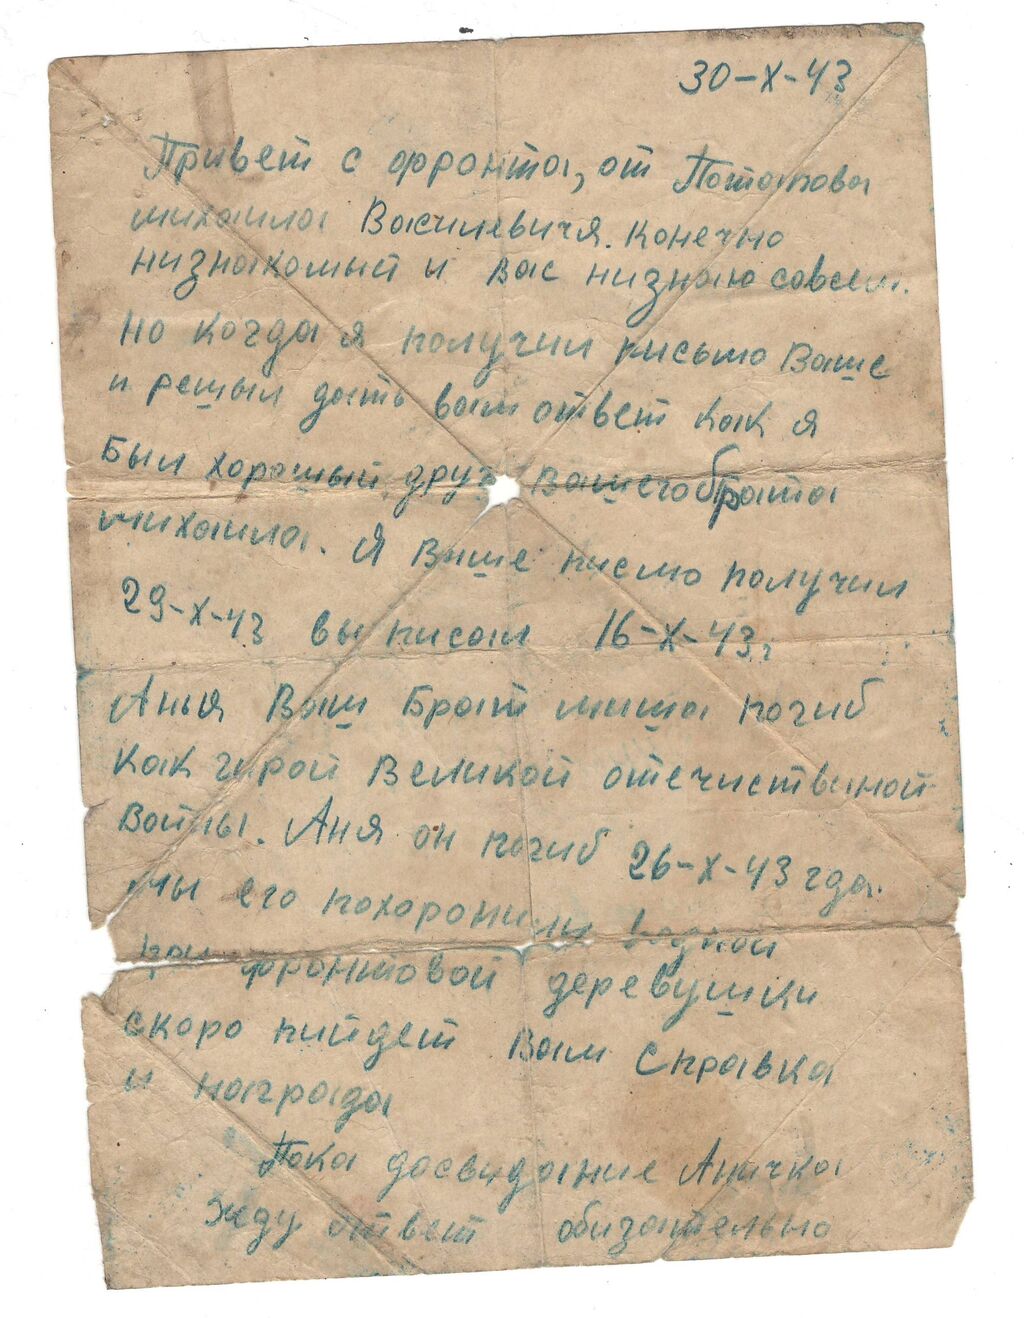 30-X-43
Привет с фронта, от Потапова
михаила Васчлевичя. Конечно
низнакомый и вас низнаю совсем.
но когда я получил письмо Ваше
и решыл дать вам ответ как я
Был хорошый друг Вашего брата
михаила. Я Ваше писмо получил
29-X-43 вы писали 16-X-43г
Анья Ваш Брат миша погиб
как герой Великой отечиственой
Войны. Аня он погиб 26-X-43 года.
мы его похоронили водной
при фронтовой деревушки
скоро пийдет Вам Справка
и награда
Пока досвидание Аничка
Жду ответ обизательно